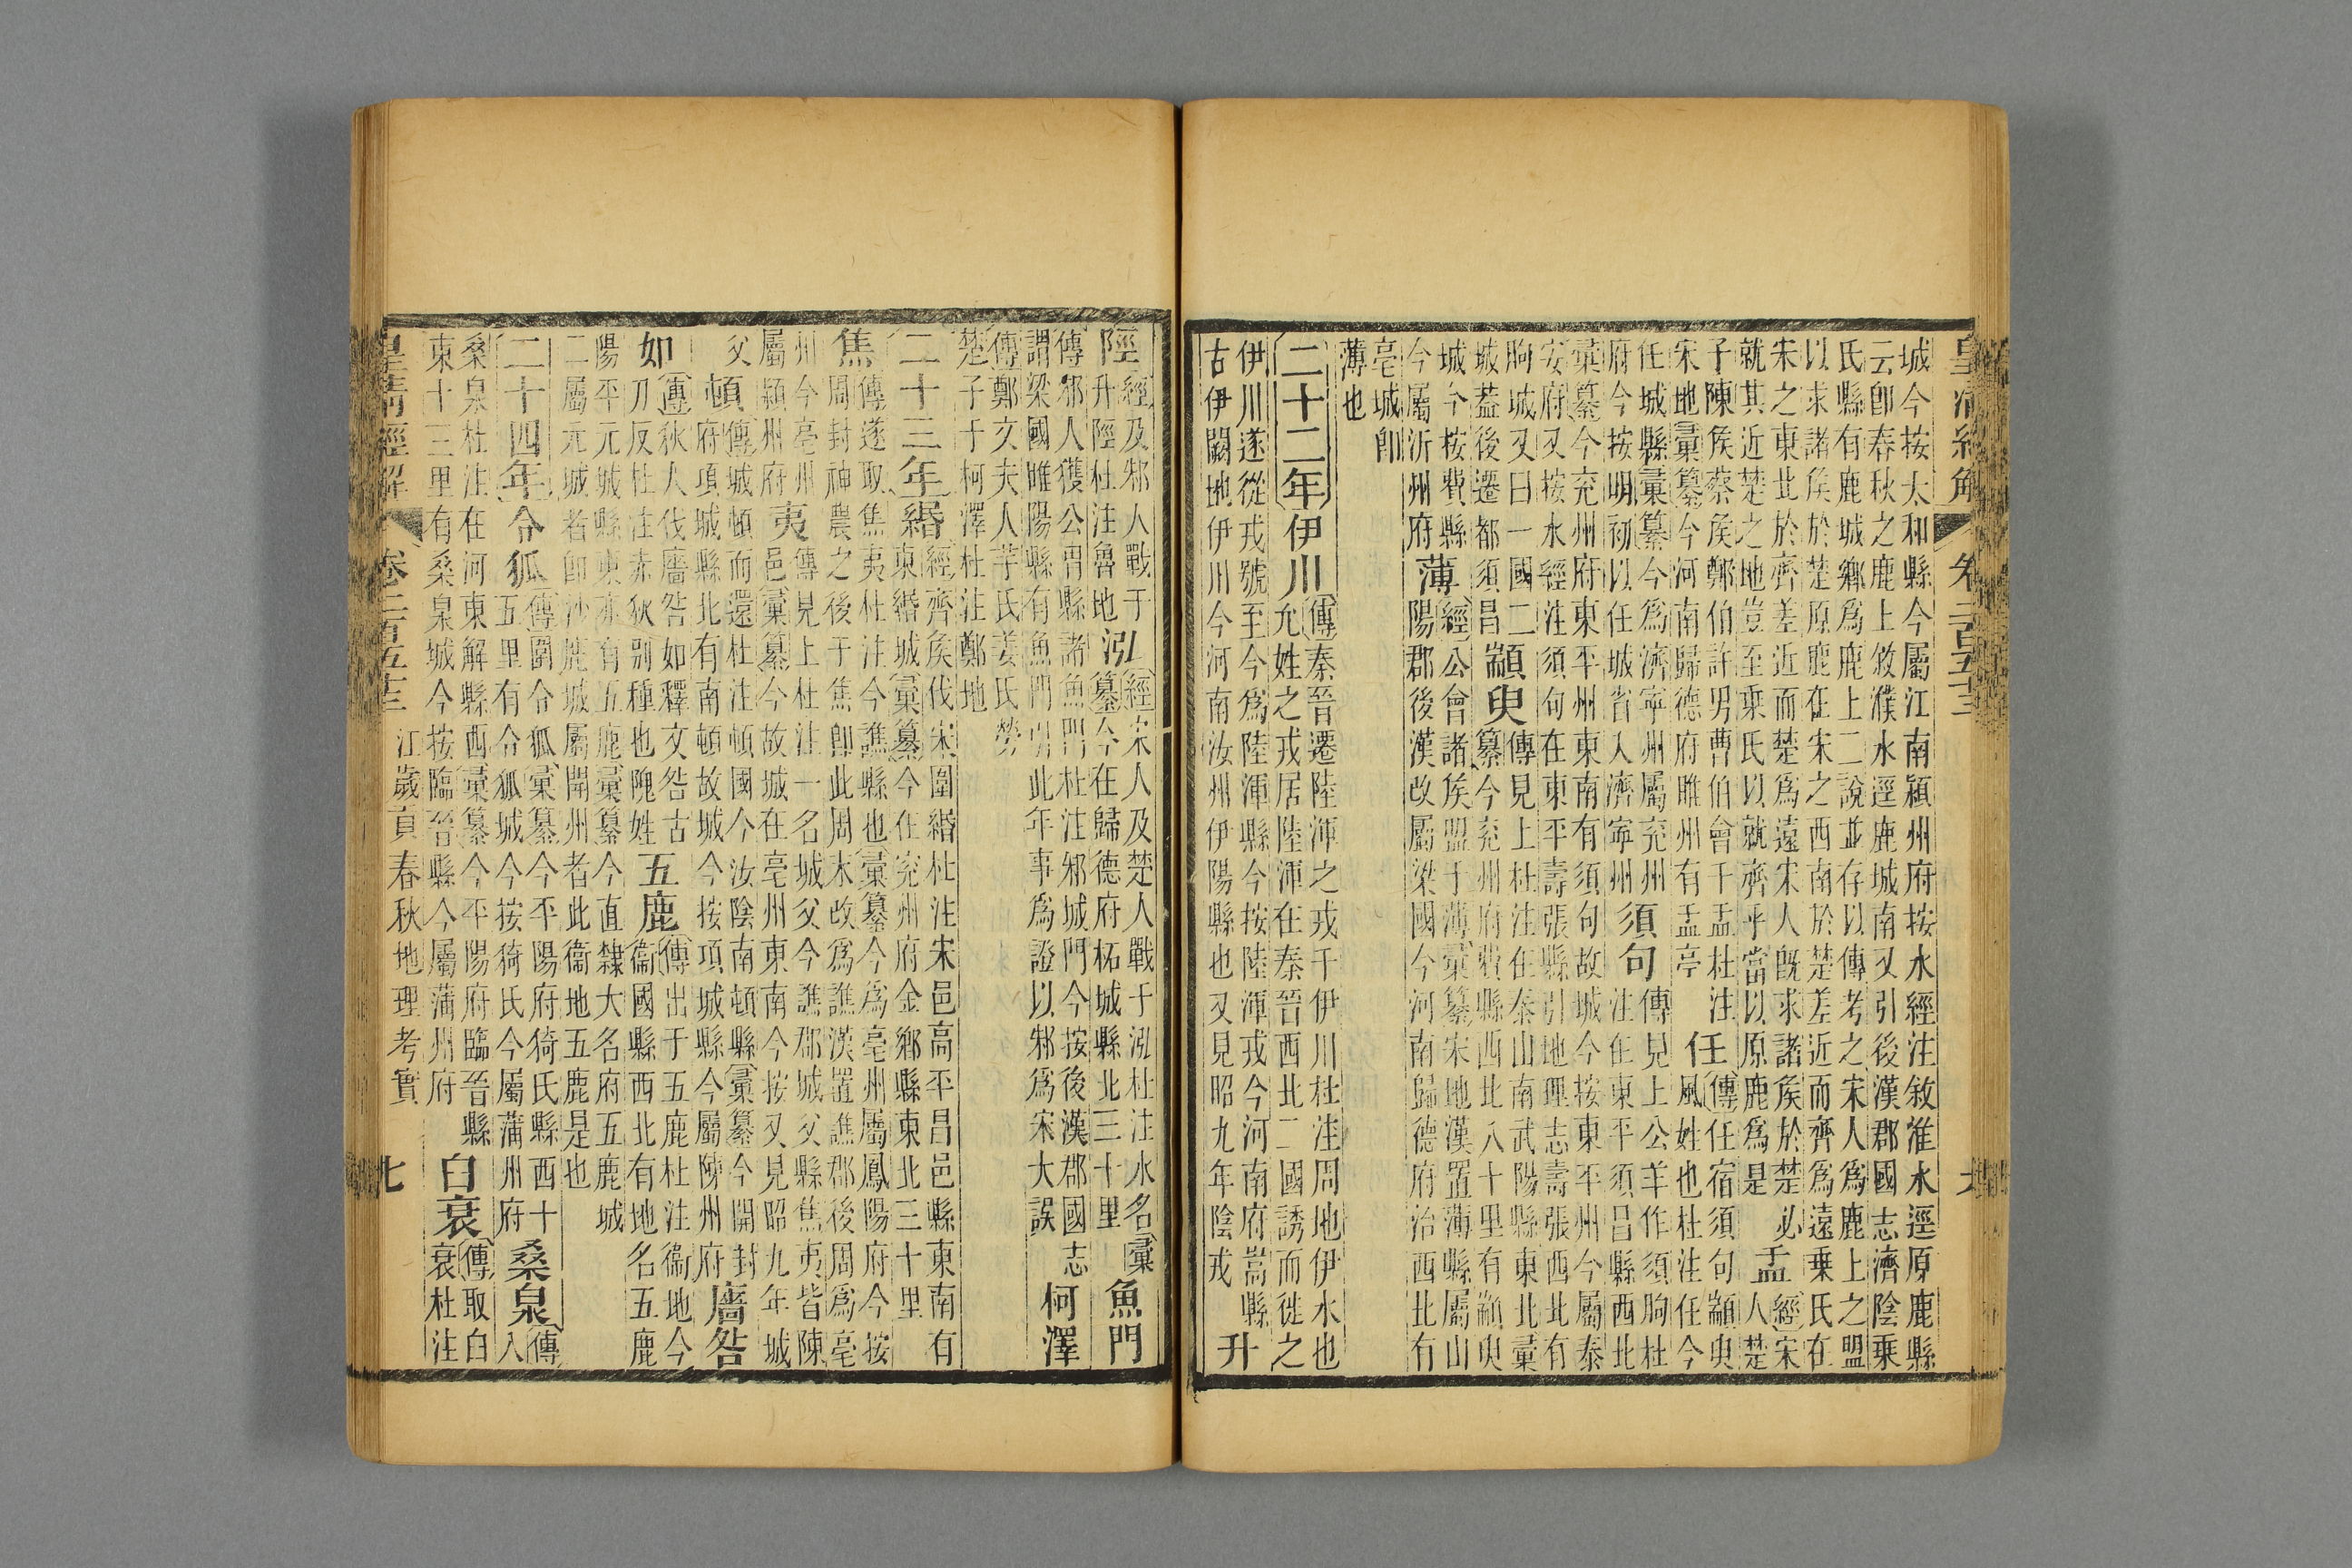 皇清經解 卷二百五十三 六
城今按太和縣今屬江南潁州府按水經注敘淮水逕原鹿縣
云卽春秋之鹿上敘濮水逕鹿城南又引後漢郡國志濟陰乘
氏縣有鹿城鄉爲鹿上二說並存以傳考之宋人爲鹿上之盟
以求諸侯於楚原鹿在宋之西南於楚差近而齊爲遠乘氏在
宋之東北於齊差近而楚爲遠宋人旣求諸侯於楚必
就其近楚之地豈至乘氏以就齊乎當以原鹿爲是 盂 經宋
人楚
子陳侯蔡侯鄭伯許男曹伯會于盂杜注
宋地彙纂今河南歸德府睢州有盂亭 任 傳任宿須句顓臾
風姓也杜注任今
任城縣彙纂今爲濟寧州屬兗州
府今按明初以任城省入濟寧州 須句 傳見上公羊作須朐杜
注在東平須昌縣西北
彙纂今兗州府東平州東南有須句故城今按東平州今屬泰
安府又按水經注須句在東平壽張縣引地理志壽張西北有
朐城又曰一國二
城蓋後遷都須昌 顓臾 傳見上杜注在泰山南武陽縣東北彙
纂今兗州府費縣西北八十里有顓臾
城今按費縣
今屬沂州府 薄 經公會諸侯盟于薄彙纂宋地漢置薄縣屬山
陽郡後漢改屬梁國今河南歸德府治西北有
亳城卽
薄也
二十二年 伊川 傳秦晉遷陸渾之戎于伊川杜注周地伊水也
允姓之戎居陸渾在秦晉西北二國誘而徙之
伊川遂從戎號至今爲陸渾縣今按陸渾戎今河南府嵩縣
古伊闕地伊川今河南汝州伊陽縣也又見昭九年陰戎 升
陘 經及邾人戰于
升陘杜注魯地 泓 經宋人及楚人戰于泓杜注水名彙
纂今在歸德府柘城縣北三十里 魚門
傳邾人獲公冑縣諸魚門杜注邾城門今按後漢郡國志
謂梁國睢陽縣有魚門引此年事爲證以邾爲宋大誤 柯澤
傳鄭文夫人羋氏姜氏勞
楚子于柯澤杜注鄭地
二十三年 緡 經齊侯伐宋圍緡杜注宋邑高平昌邑縣東南有
東緡城彙纂今在兗州府金鄉縣東北三十里
焦 傳遂取焦夷杜注今譙縣也彙纂今爲亳州屬鳳陽府今按
周封神農之後于焦卽此周末改爲譙漢置譙郡後周爲亳
州今亳州
屬潁州府 夷 傳見上杜注一名城父今譙郡城父縣焦夷皆陳
邑彙纂今故城在亳州東南今按又見昭九年城
父 頓 傳城頓而還杜注頓國今汝陰南頓縣彙纂今開封
府項城縣北有南頓故城今按項城縣今屬陳州府 廧咎
如 傳狄人伐廧咎如釋文咎古
刀反杜注赤狄別種也隗姓 五鹿 傳出于五鹿杜注衞地今
衞國縣西北有地名五鹿
陽平元城縣東亦有五鹿彙纂今直隸大名府五鹿城
二屬元城者卽沙鹿城屬開州者此衞地五鹿是也
二十四年 令狐 傳圍令狐彙纂今平陽府猗氏縣西十
五里有令狐城今按猗氏今屬蒲州府 桑泉 傳入
桑泉杜注在河東解縣西彙纂今平陽府臨晉縣
東十三里有桑泉城今按臨晉縣今屬蒲州府 臼衰 傳取臼
衰杜注
皇清經解 卷二百五十三 江歲貢春秋地理考實 七